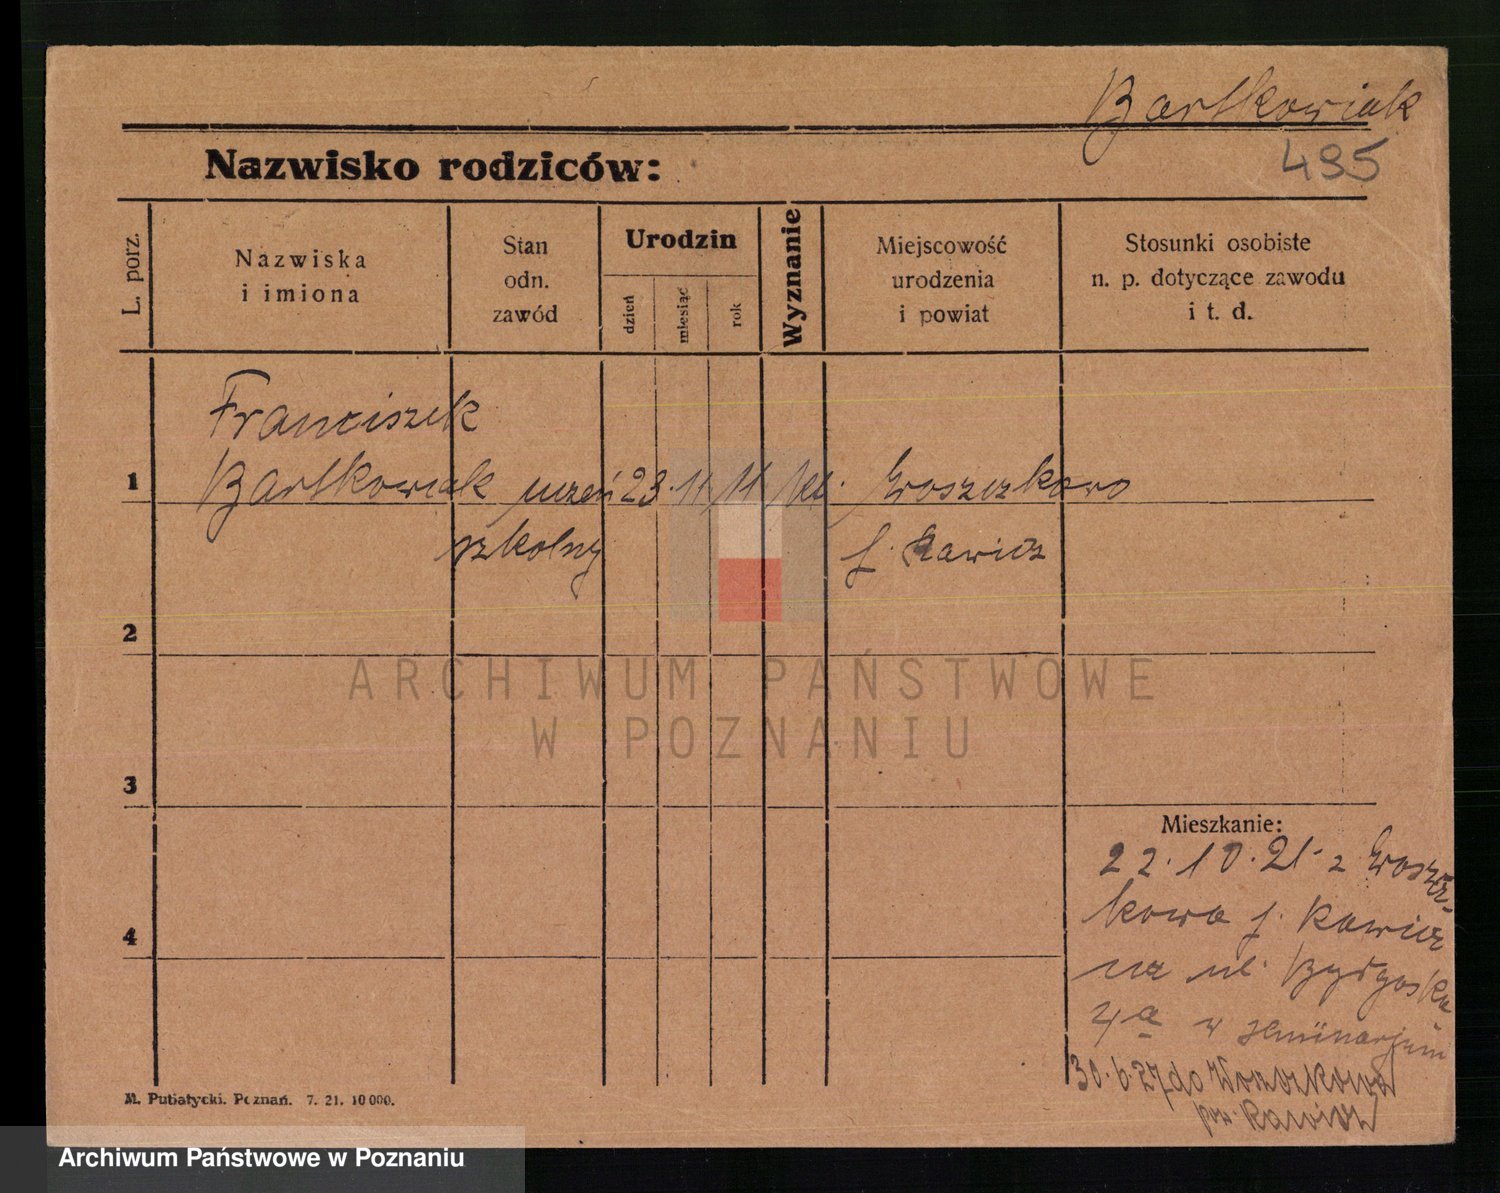 Bartkowiak
495
Nazwisko rodziców:
L. porz.
Nazwiska
i imiona
Stan
odn.
zawód
Urodzin
dzień
miesiąc
rok
Wyznanie
Miejscowość
urodzenia
i powiat
Stosunki osobiste
n. p. dotyczące zawodu
i t. d.
Franciszek
1 Bartkowiak uczeń 23. 11 11
szkolny
2
ARCHIWUM PAŃSTWOWE
W POZNANIU
3
Mieszkanie:
22.10.21 z
kowa
4
na ul. Bydgoska
4a w seminarjum
30.6.27 do
pow.
M. Putiatycki. Poznań. 7. 21. 10 000.
Archiwum Państwowe w Poznaniu